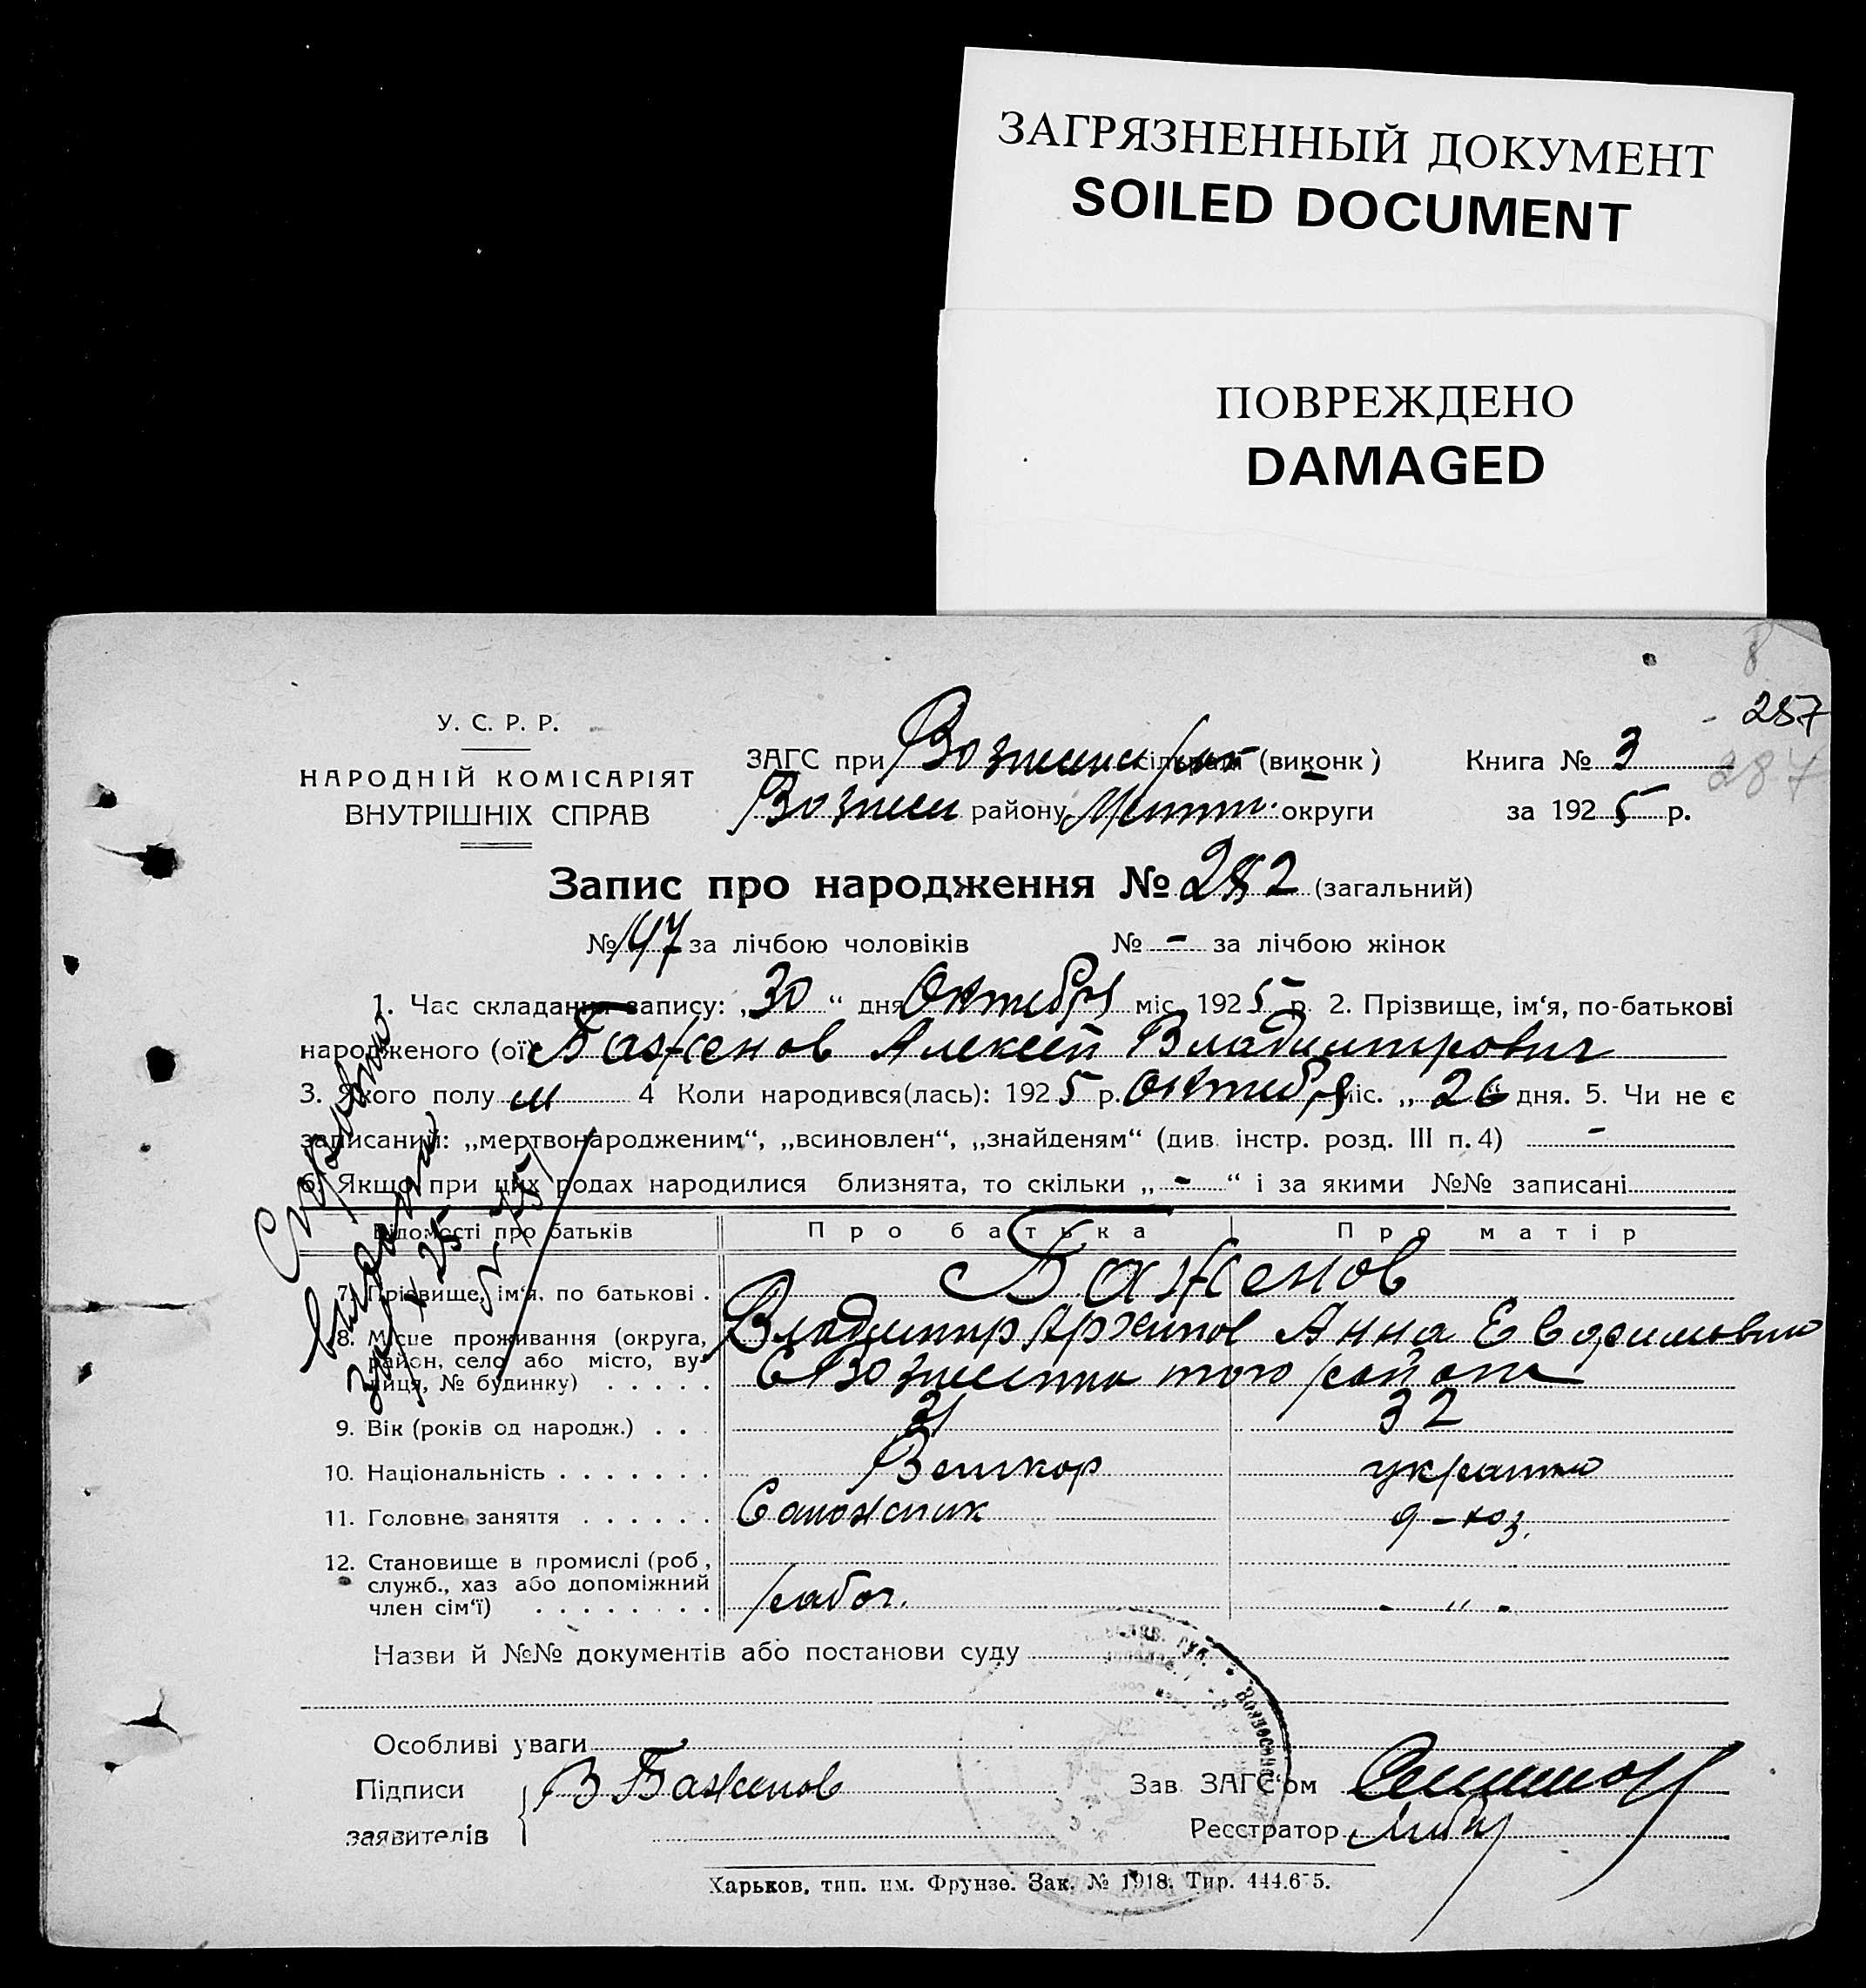 ЗАГРЯЗНЕННЫЙ ДОКУМЕНТ
SOILED DOCUMENT
ПОВРЕЖДЕНО
DAMAGED
8
287
287
У. С. Р. Р.
НАРОДНІЙ КОМІСАРІЯТ
ВНУТРІШНІХ СПРАВ
ЗАГС при сільраді (виконк)
району округи
Книга № 3
за 1925 р.
Запис про народження № 282 (загальний)
№ 147 за лічбою чоловіків № - за лічбою жінок
1. Час складання запису: „30“ дня Октября міс. 1925 р. 2. Прізвище, ім‘я, по-батькові
народженого (ої) Баженов Алексей Владимирович
3. Якого полу м 4 Коли народився(лась): 1925 р. Октября міс. „26“ дня. 5. Чи не є
записаний: „мертвонародженим“, „всиновлен“, „знайденям“ (див. інстр. розд. III п. 4) -
6. Якщо при цих родах народилися близнята, то скільки „ - “ і за якими №№ записані
Справка
выдана
Відомості про батьків Про батька Про матір
7. Прізвище, ім‘я, по батькові . Баженов
Владимир Архипов Анна
8. Місце проживання (округа, район, село або місто, вулиця, № будинку) . . . . . того района
9. Вік (років од народж.) . . . 31 32
10. Національність . . . . . . . Великор
11. Головне заняття . . . . . . Сапожник д-хоз.
12. Становище в промислі (роб.,
служб., хаз або допоміжний
член сім‘ї) . . . . . . . . рабоч. - „ -
Назви й №№ документів або постанови суду
Особливі уваги
Підписи
заявителів
В Баженов
Зав. ЗАГС‘ом
Реєстратор
Харьков, тип. им. Фрунзе. Зак. № 1918. Тир. 444.675.